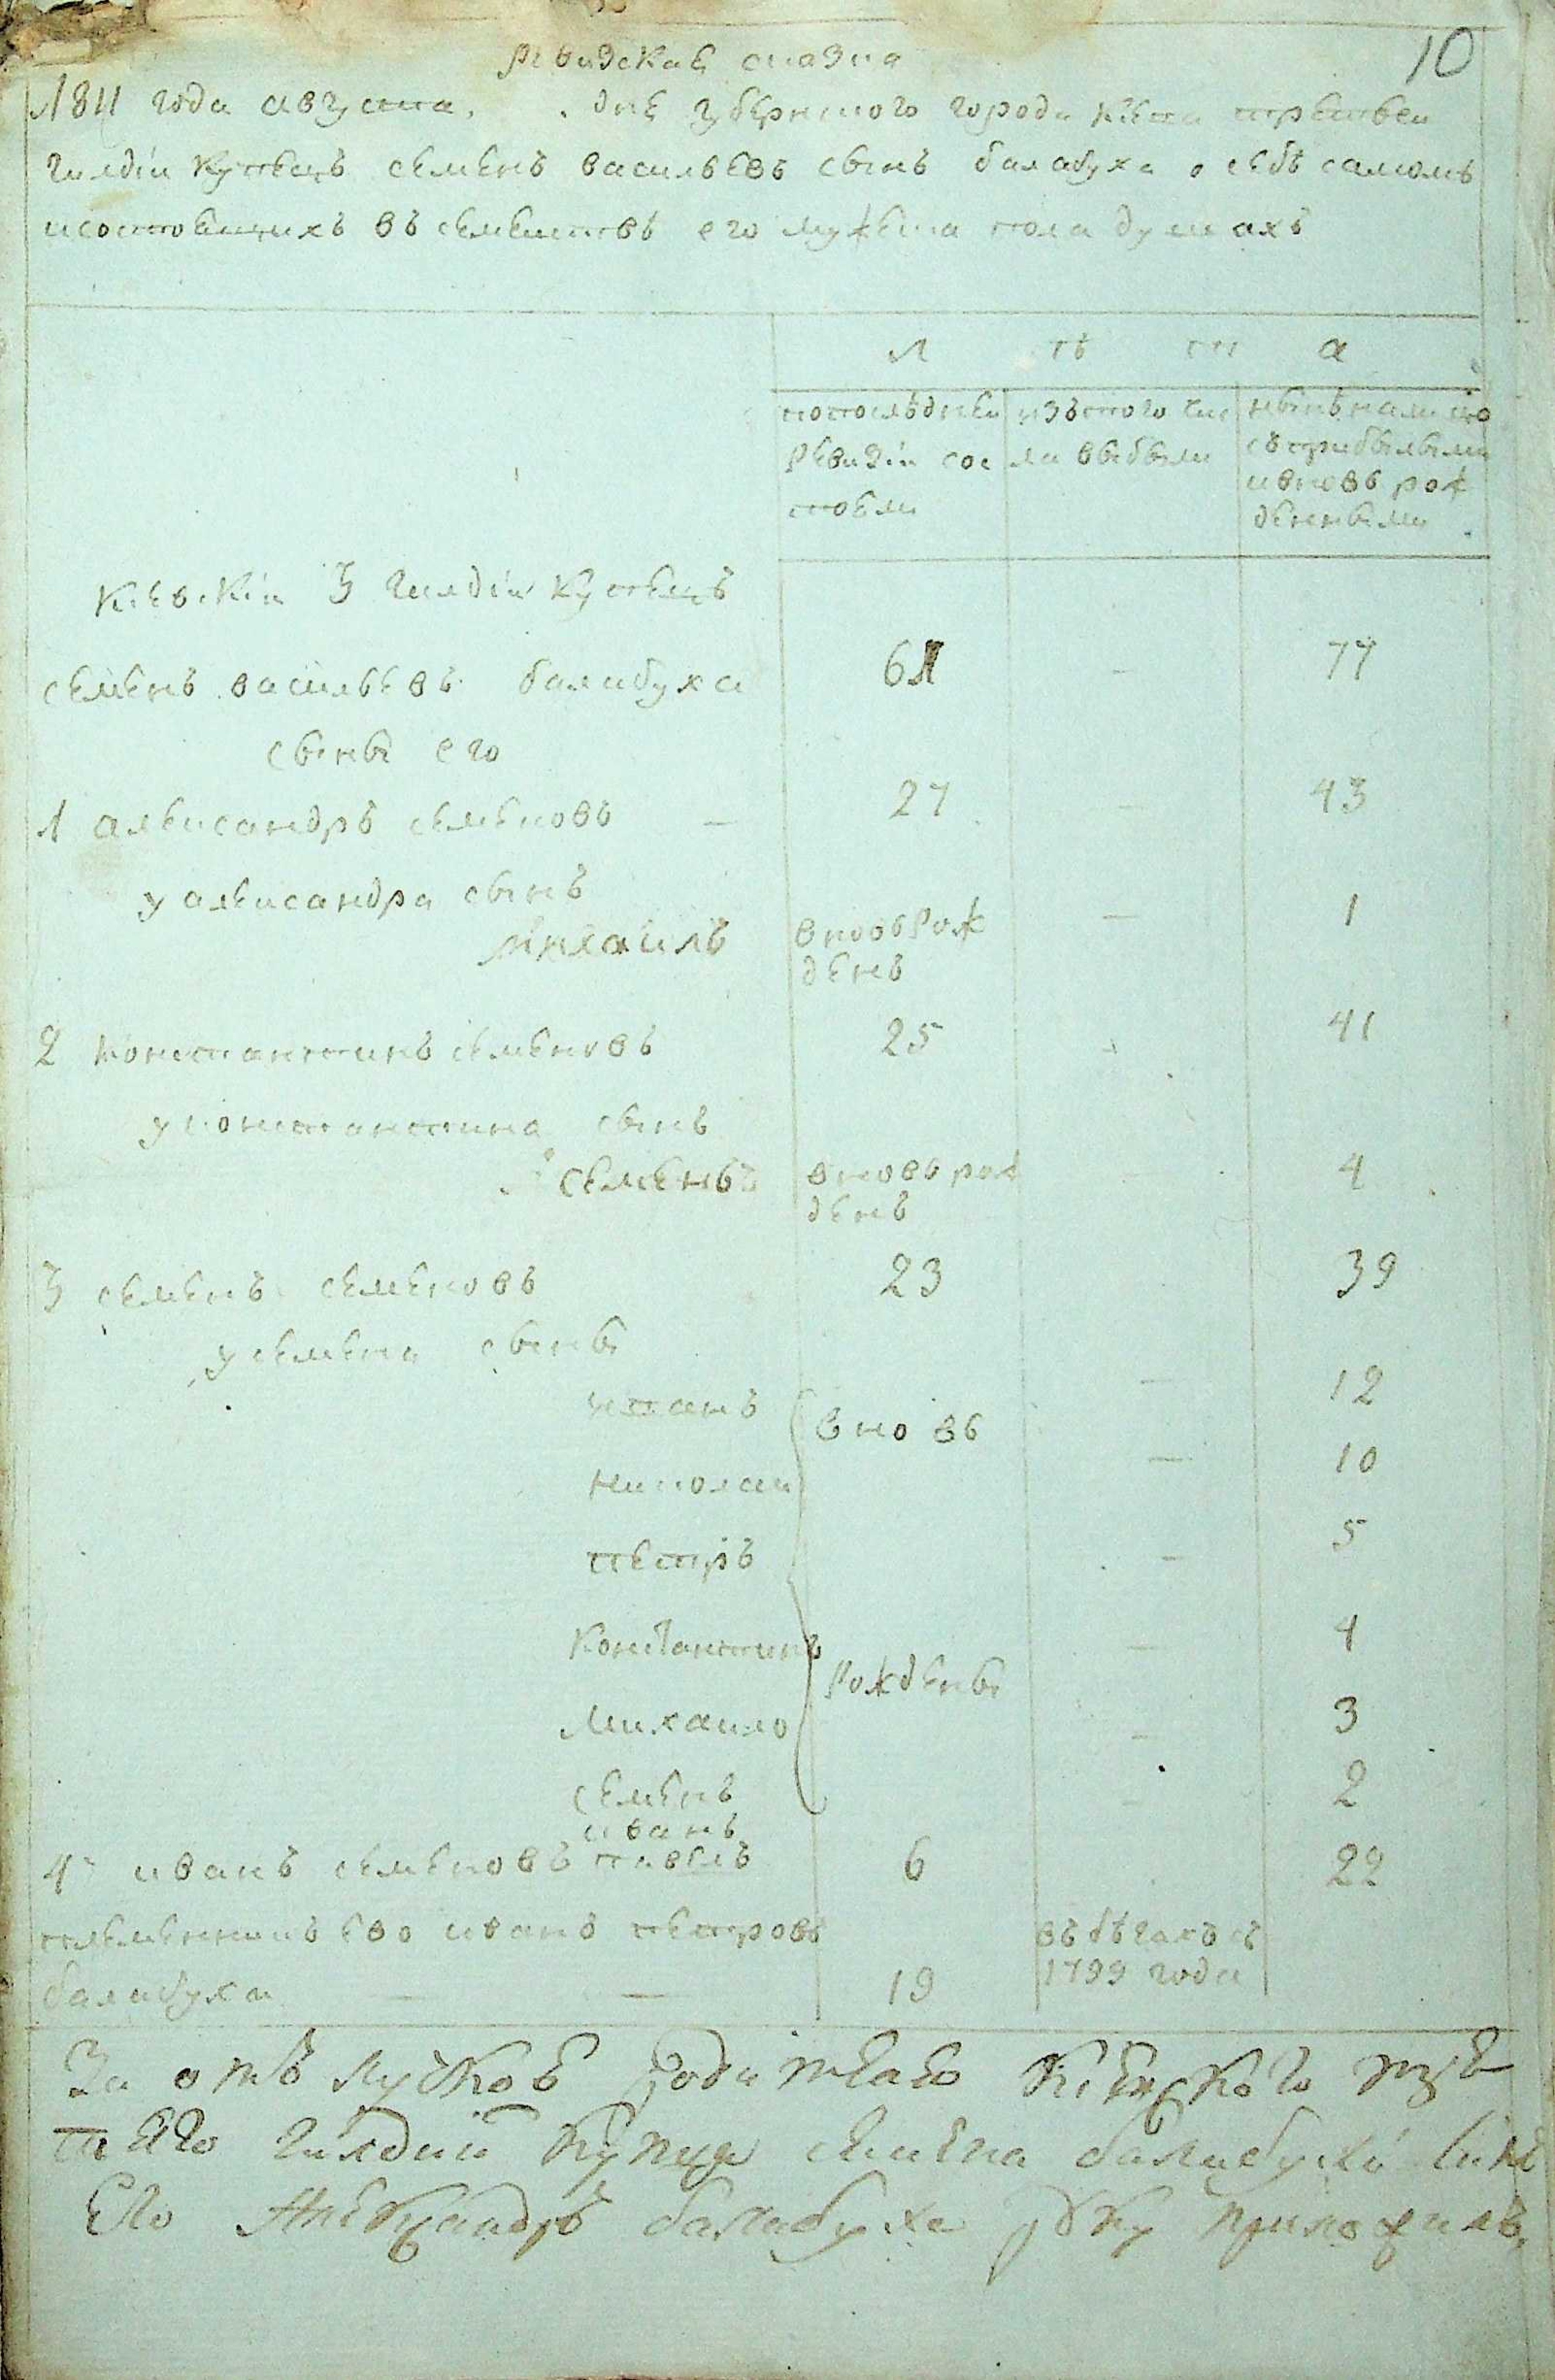 10
ревизская сказка
1811 года августа . дня губернского города киева третьеи
гилдіи купецъ семенъ васильевъ сынъ балабуха о себѣ самомъ
и состоящихъ въ семействѣ его мужеска пола душахъ
л ѣ т а
по послѣднеи изъ того чис нынѣ на лицо
ревизіи сос ла выбыли съ прибылыми
тояли и вновь рож
денными
кіевскіи 3 гилдіи купецъ
семенъ васильевъ балабуха 61 - 77
сыны его
1 александръ семеновъ — 27 — 43
у александра сынъ
михаилъ вновь рож — 1
денъ
2 константинъ семеновъ 25 - 41
у константина сынъ
семенъ вновь рож - 4
денъ
3 семенъ семеновъ 23 39
у семена сыны
степанъ вновь — 12
николаи — 10
петръ — 5
константинъ — 4
рождены
михаило - 3
семенъ - 2
иванъ
4 иванъ семеновъ павелъ 6 22
племенникъ ево иванъ петровъ въ бѣгахъ съ
балабуха — — 19 1799 года
За отъ родителя киевского трет
его гилдии купца семена балабухи синъ
его александръ балабуха руку приложилъ